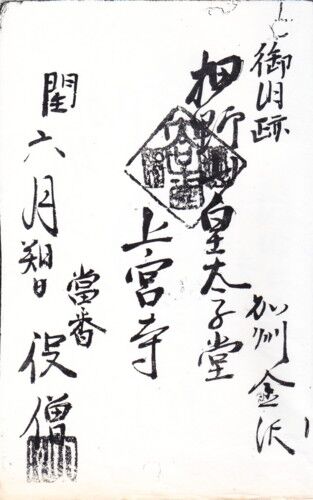 御旧跡
加州金沢
押野 皇太子堂
上宮寺
閏六月朔日
當番
役僧